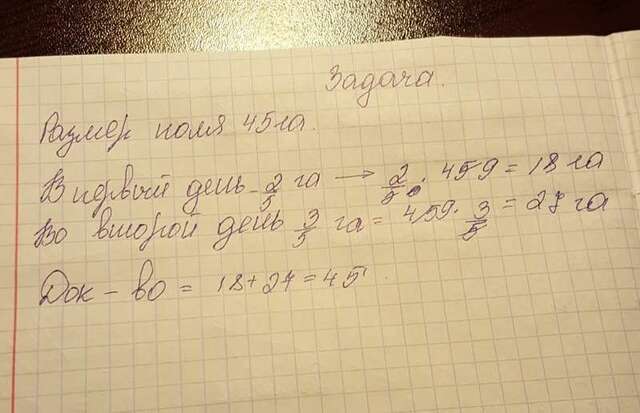 Задача.
Размер поля 45га.
В первый день - 2/5 га → 2/5 · 459 = 18 га
Во второй день 3/5 га = 459 · 3/5 = 27 га
Док - во = 18+27=45